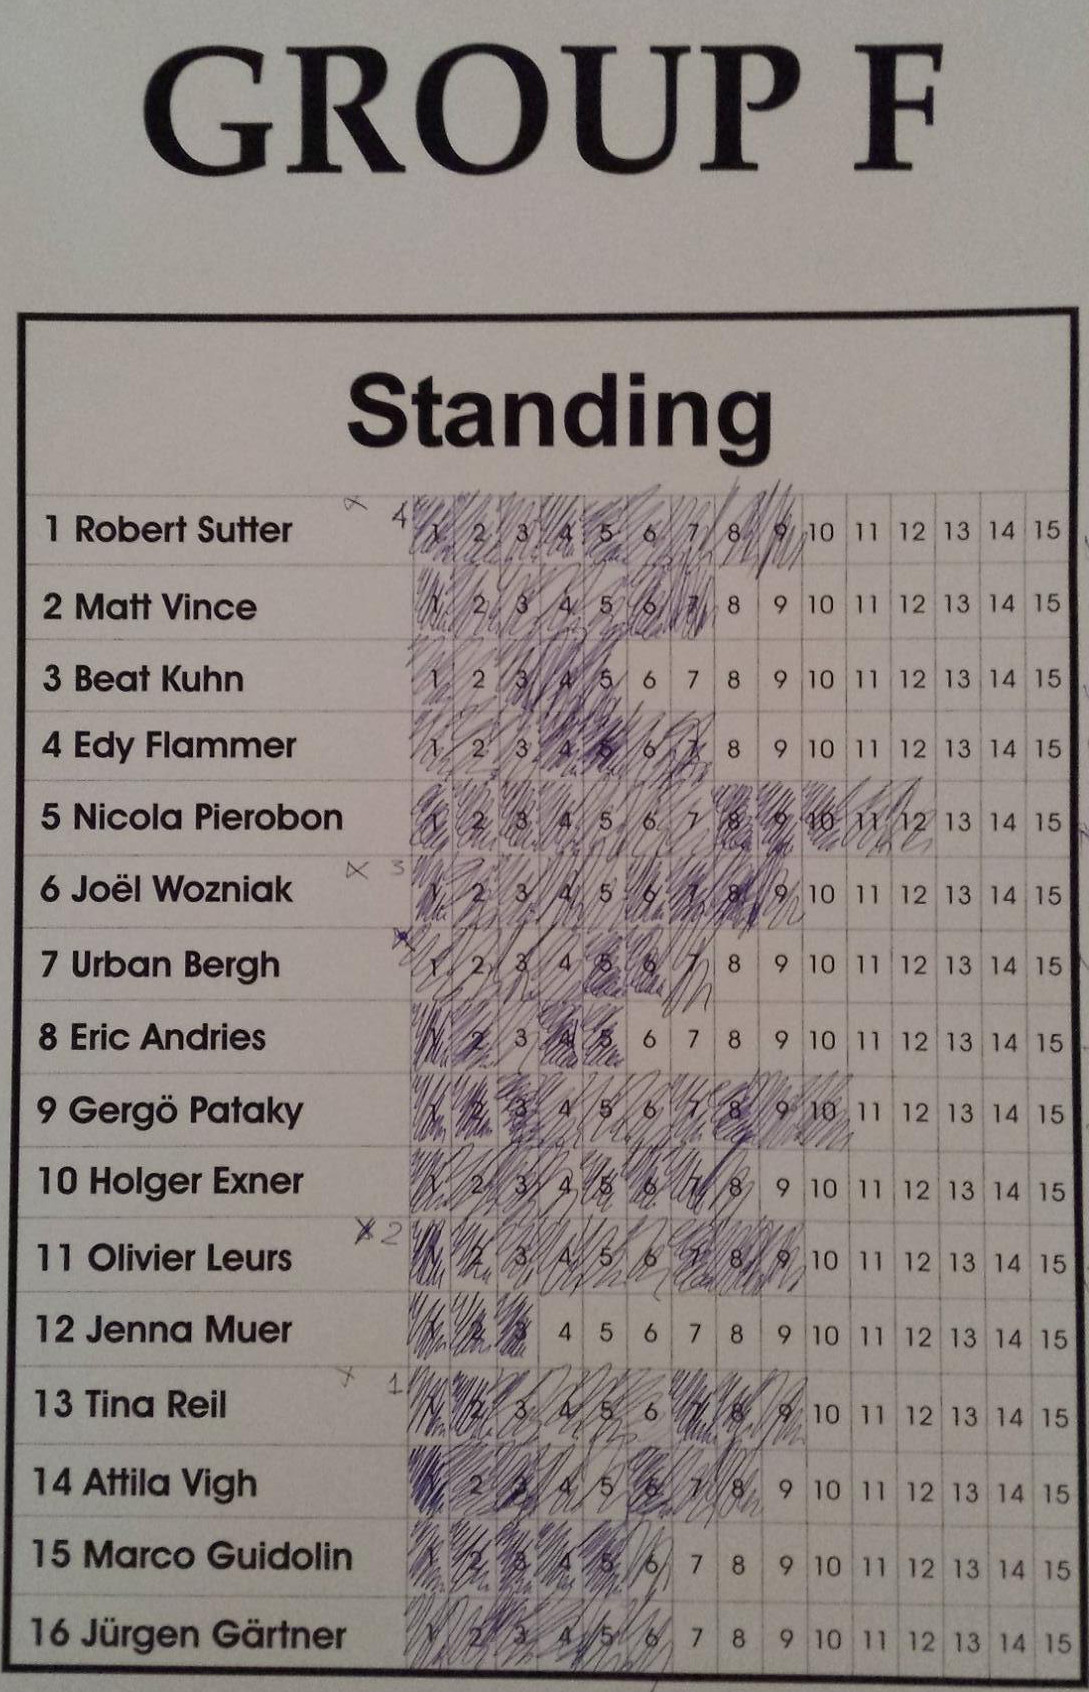 GROUP F
Standing
1 Robert Sutter x 4 1 2 3 4 5 6 7 8 9 10 11 12 13 14 15
2 Matt Vince 1 2 3 4 5 6 7 8 9 10 11 12 13 14 15
3 Beat Kuhn 1 2 3 4 5 6 7 8 9 10 11 12 13 14 15
4 Edy Flammer 1 2 3 4 5 6 7 8 9 10 11 12 13 14 15
5 Nicola Pierobon 1 2 3 4 5 6 7 8 9 10 11 12 13 14 15
6 Joël Wozniak x 3 1 2 3 4 5 6 7 8 9 10 11 12 13 14 15
7 Urban Bergh x 1 2 3 4 5 6 7 8 9 10 11 12 13 14 15
8 Eric Andries 1 2 3 4 5 6 7 8 9 10 11 12 13 14 15
9 Gergö Pataky 1 2 3 4 5 6 7 8 9 10 11 12 13 14 15
10 Holger Exner 1 2 3 4 5 6 7 8 9 10 11 12 13 14 15
11 Olivier Leurs x 2 1 2 3 4 5 6 7 8 9 10 11 12 13 14 15
12 Jenna Muer 1 2 3 4 5 6 7 8 9 10 11 12 13 14 15
13 Tina Reil x 1 1 2 3 4 5 6 7 8 9 10 11 12 13 14 15
14 Attila Vigh 1 2 3 4 5 6 7 8 9 10 11 12 13 14 15
15 Marco Guidolin 1 2 3 4 5 6 7 8 9 10 11 12 13 14 15
16 Jürgen Gärtner 1 2 3 4 5 6 7 8 9 10 11 12 13 14 15